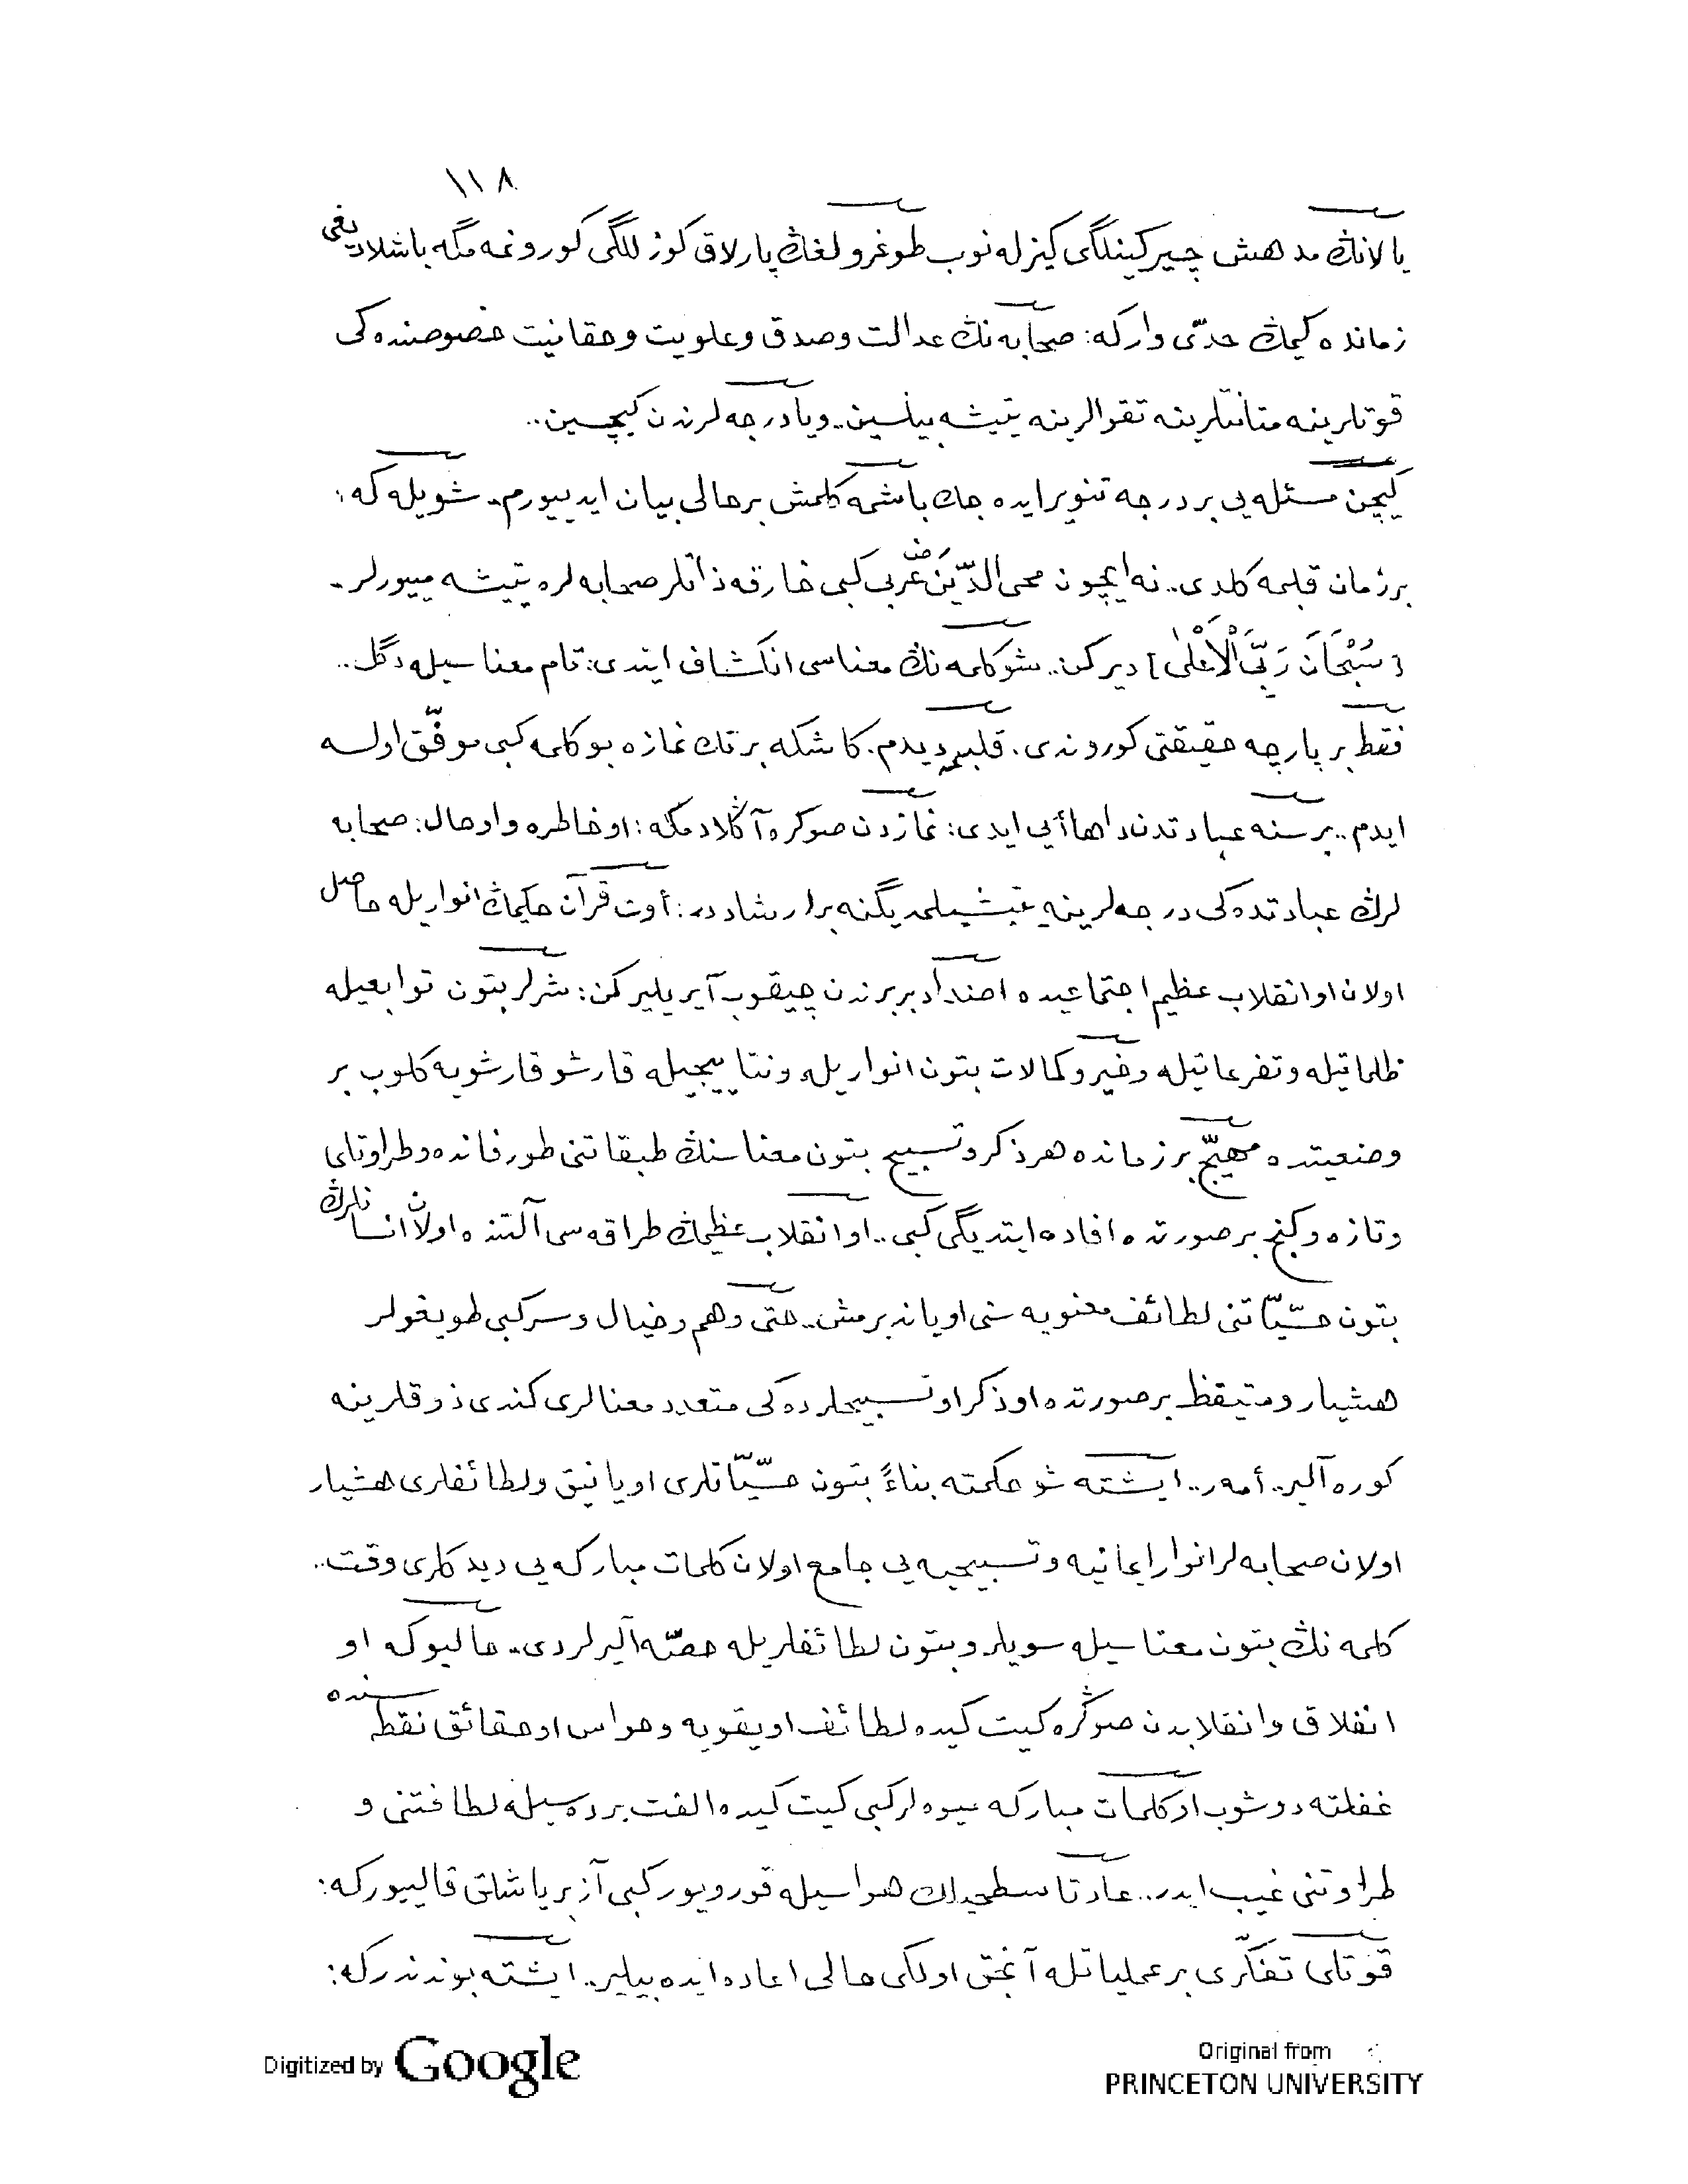 ١١٨
يالانڭ مدهش چيركينلگى گيزله نوب طوغرولغڭ پارلاق كوزللگى كورونمه مگه باشلاديغى
زمانده كيمڭ حدّى واركه: صحابه نڭ عدالت وصدق وعلويت وحقانيت خصوصنده كى
قوتلرينه متانتلرينه تقوالرينه يتيشه بيلسين.. ويا درجه لرندن گيچسين..
گيچن مسئله يى بر درجه تنوير ايده جك باشمه كلمش برحالى بيان ايدييورم. شويله كه:
برزمان قلبمه كلدى.. نه ايچون محى الدّين عربى كبى خارقه ذاتلر صحابه لره يتيشه مييورلر.
[سُبْحَانَ رَبِّىَ الْاَعْلٰى] ديركن.. شو كلمه نڭ معناسى انكشاف ايتدى: تام معناسيله دگل..
فقط بر پارچه حقيقتى كوروندى. قلبمه ديدم. كاشكه برتك نمازه بو كلمه كبى موفّق اولسه
ايدم.. برسنه عبادتدن داها أيى ايدى: نمازدن صوڭره آڭلادمكه: او خاطره و اوحال: صحابه
لرڭ عبادتده كى درجه لرينه يتيشيلمديگنه برارشاددر: أوت قرآن حكيمڭ انواريله حاصل
اولان او انقلاب عظيم اجتماعيده اضداد بربرندن چيقوب آيريليركن: شرلر بتون توابعيله
ظلماتيله وتفرعاتيله وخير وكمالات بتون انواريله ونتاييجيله قارشو قارشويه كلوب بر
وضعيتده مهيّج برزمانده هر ذكر وتسبيح بتون معناسنڭ طبقاتنى طورفانده وطراوتلى
وتازه وكنج برصورتده افاده ايتديگى كبى.. او انقلاب عظيمڭ طراقه سى آلتنده اولان انسانلرڭ
بتون حسّياتنى لطائف معنويه سنى اوياندیرمش.. حتى وهم وخيال وسر كبى طويغولر
هشيار ومتيقظ برصورتده او ذكر او تسبيحلرده كى متعدد معنالرى كندى ذوقلرينه
كوره آلير.. أمر.. ايشته شو حكمته بناءً بتون حسّياتلرى اويانيق ولطائفلرى هشيار
اولان صحابه لر انوار ايمانيه وتسبيحيه يى جامع اولان كلمات مباركه يى ديدكلرى وقت..
كلمه نڭ بتون معناسيله سويلر وبتون لطائفلريله حصّه آليرلردى. حالبوكه او
انفلاق وانقلابدن صوڭره كيت كيده لطائف اويقويه وحواس اوحقائق نقطه سنده
غفلته دوشوب او كلمات مباركه ميوه لر كبى كيت كيده الفت پرده سيله لطافتنى و
طراوتنى غيب ايدر.. عادتا سطحيلك هواسيله قورويور كبى آز بر ياشلق قالييوركه:
قوتلى تفكّرى بر عملياتله آنجق اولكى حالى اعاده ايده بيلير.. ايشته بوندندركه:
Digitized by Google
Original from
PRINCETON UNIVERSITY